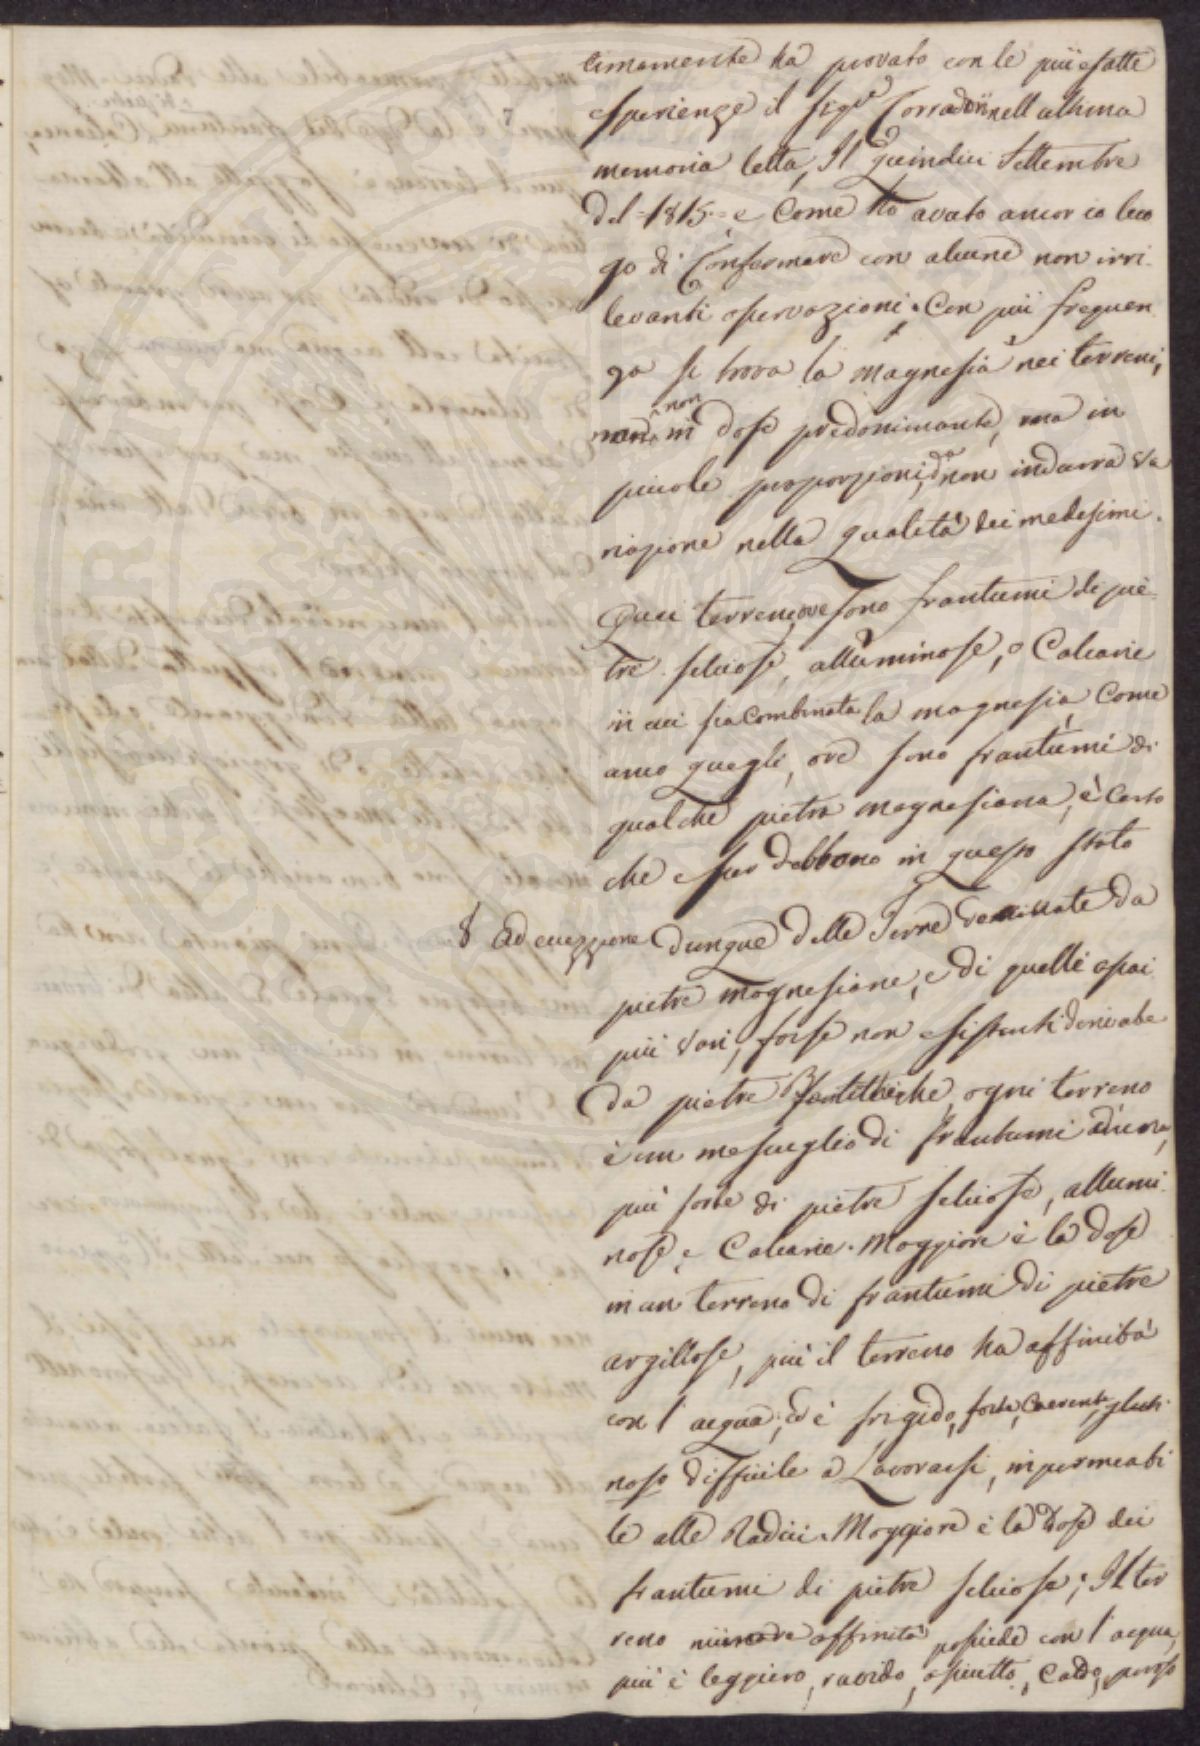 timamente ha provato con le più esatte
7
esperienze il Sigre Corradori nell ultima
memoria letta, Il quindici Settembre
del =1815.= e Come ho avuto ancor io luo
go di Confermare con alcune non irri-
levanti osservazioni. Con più frequen
za si trova la magnesia nei terreni,
non in dose predominante, ma in
picole proporzioni, da non indurra va
riazione nella qualità dei medesimi.
Quei terreni ove sono frantumi di pie-
tre selciose, alluminose, o Calcarie
in cui sia combinata la magnesia Come
anco quegli, ove sono frantumi di
qualche pietra magnesiana, è Certo
che esser debbono in questo stato
8 Ad eccezzione dunque delle Terre da
pietre magnesiane, e di quelle assai
più rari, forse non esistenti
da pietre ogni terreno
è un mescuglio di frantumi
più sorte di pietre selciose, allumi-
nose, e Calcarie. Maggiore è la dose
in un terreno di frantumi di pietre
argillose, più il terreno ha affinità
con l'acqua, ed è frigido, forte, Coerente, gluti-
noso difficile a Lavorarsi, impermeabi
le alle Radici. Maggiore è la Dose dei
frantumi di pietre selciose; Il ter
reno minore affinità possiede con l'acqua,
più è leggiero, ruvido, asciutto, Caldo, poroso